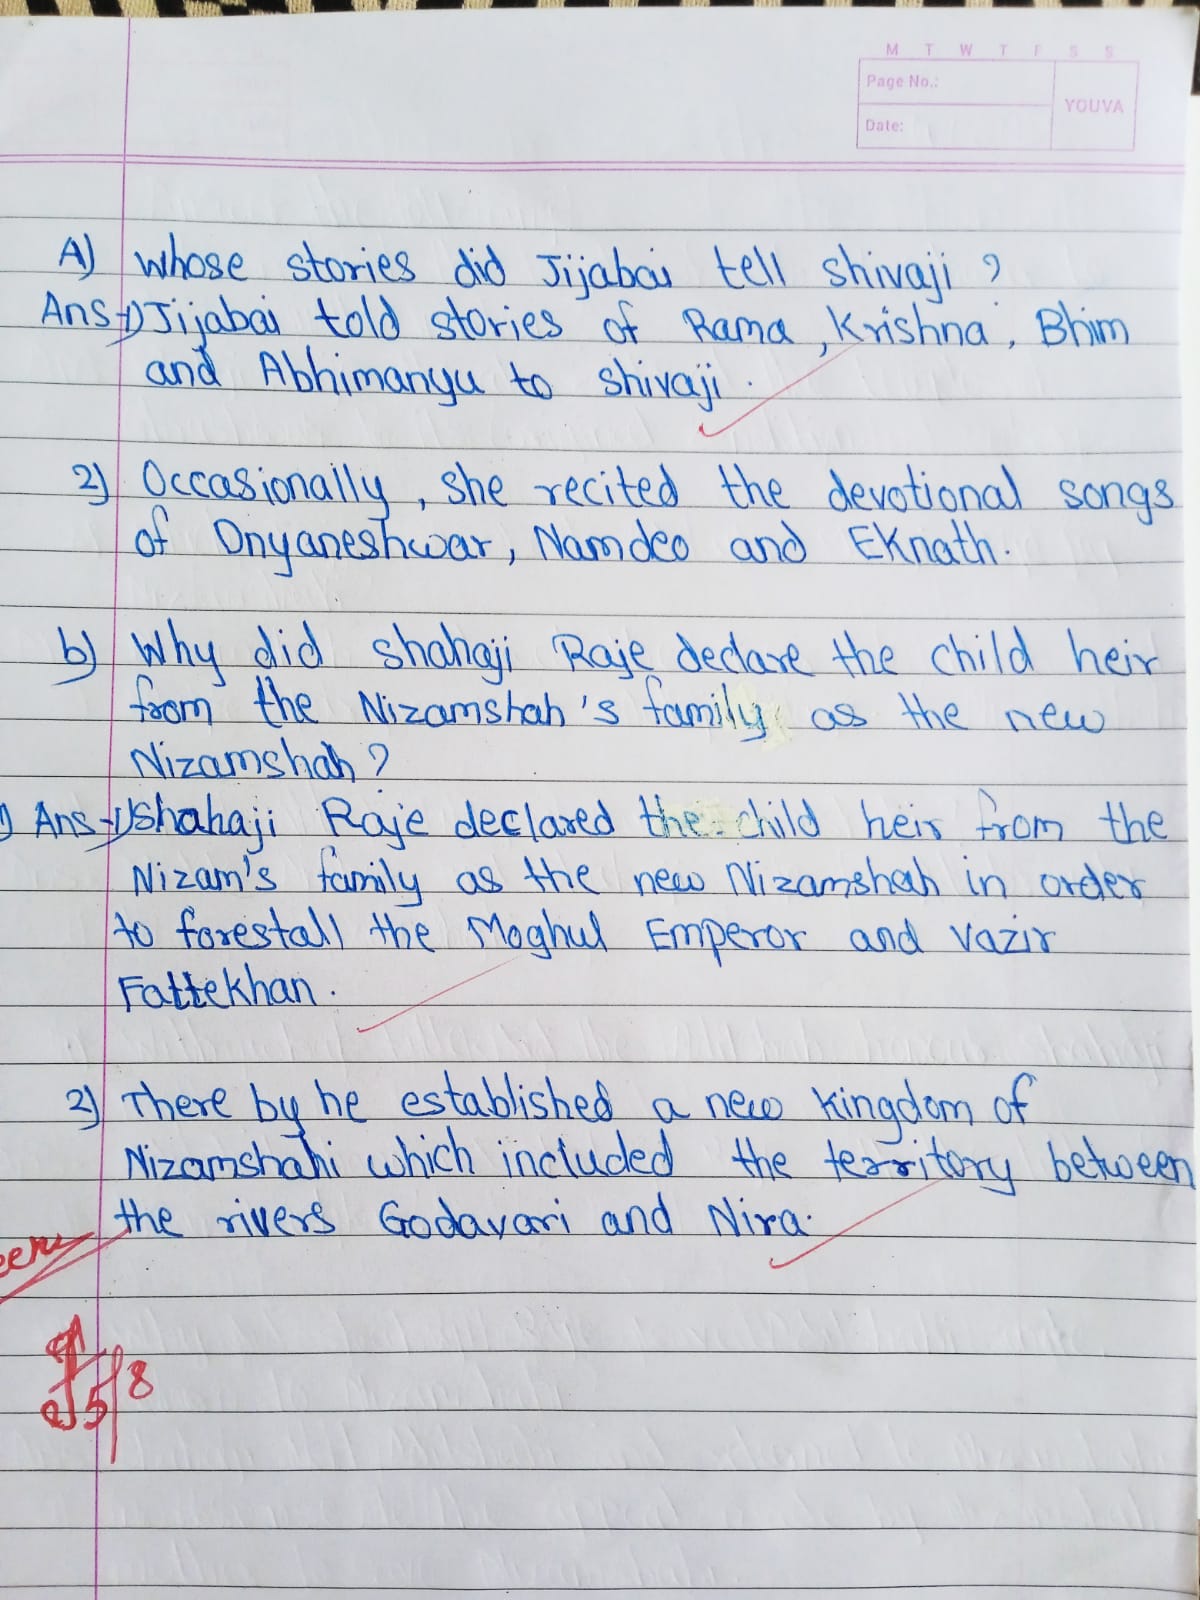 M T W T F S S
Page No.:
YOUVA
Date:
A) Whose stories did Jijabai tell shivaji ?
Ans-1) Jijabai told stories of Rama, Krishna, Bhim
and Abhimanyu to shivaji.
2) Occasionally, she recited the devotional songs
of Dnyaneshwar, Namdeo and Eknath.
b) Why did shahaji Raje declare the child heir
from the Nizamshah's family as the new
Nizamshah ?
Ans-1) Shahaji Raje declared the child heir from the
Nizam's family as the new Nizamshah in order
to forestall the Moghul Emperor and Vazir
Fattekhan.
2) There by he established a new kingdom of
Nizamshahi which included the territory between
the rivers Godavari and Nira.
5/8